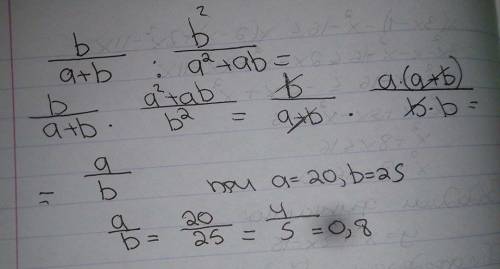 b/(a+b) : b²/(a²+ab) =
b/(a+b) · (a²+ab)/b² = b/(a+b) · a·(a+b)/(b·b) =
= a/b при a=20, b=25
a/b = 20/25 = 4/5 = 0,8